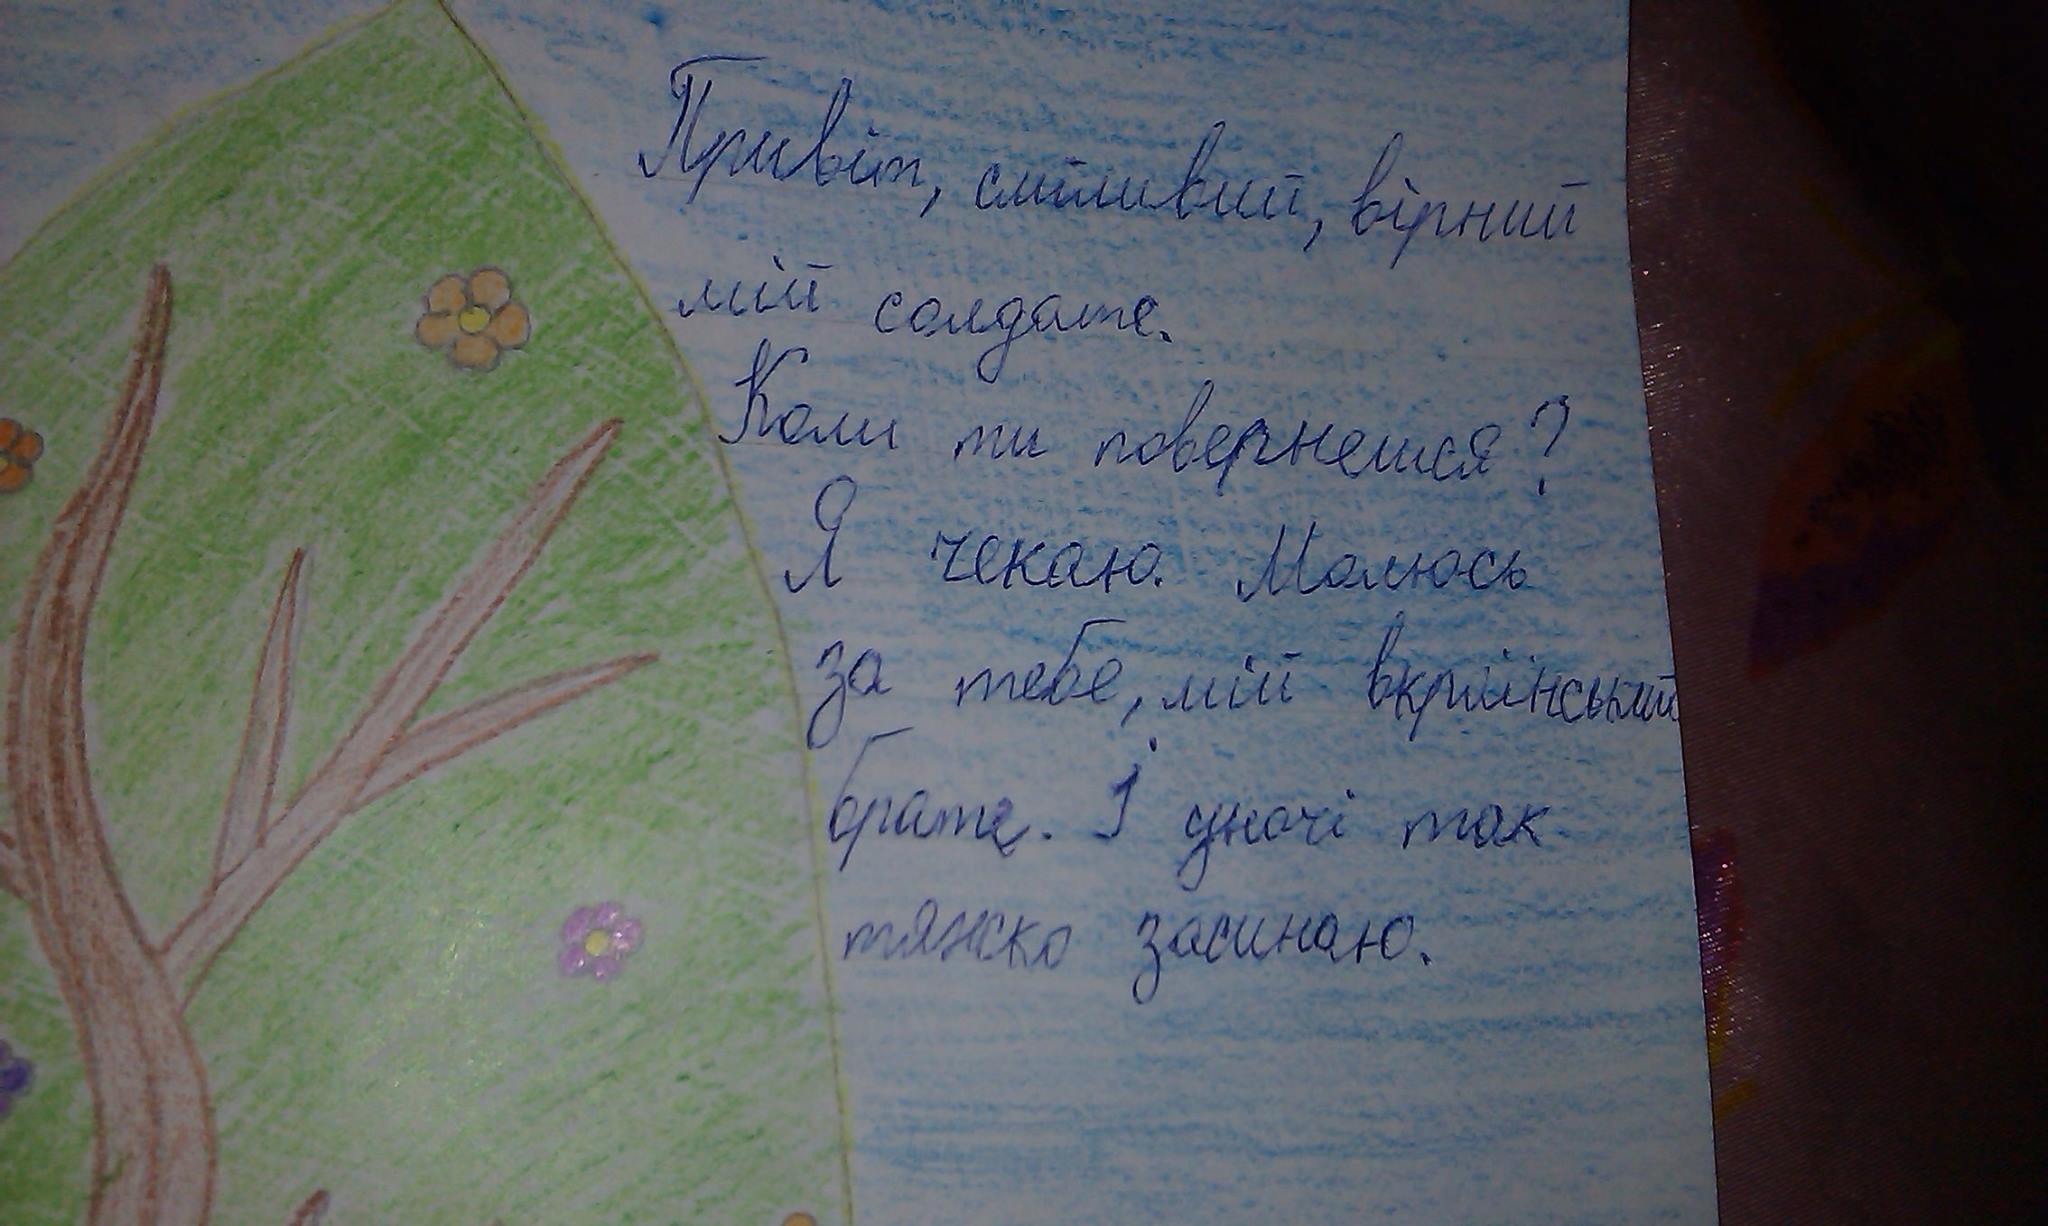 Привіт, сміливий, вірний
мій солдате.
Коли ти повернешся?
Я чекаю. Молюсь
за тебе, мій вкраїнський
брате. І уночі так
тяжко засинаю.